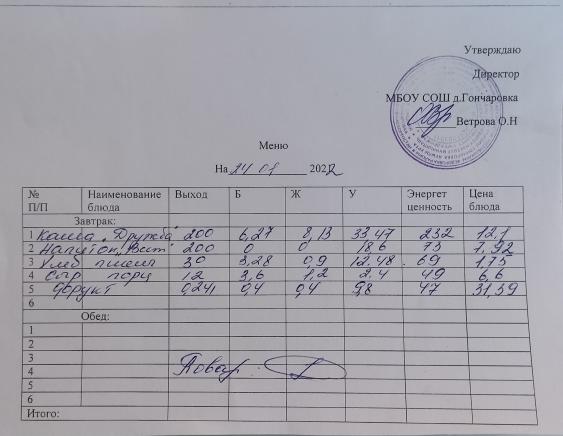 Утверждаю
Директор
МБОУ СОШ д.Гончаровка
Ветрова О.Н
Меню
На 24 01 2022
№ П/П Наименование блюда Выход Б Ж У Энергет ценность Цена блюда
Завтрак:
1 Каша "Дружба" 200 6,27 8,13 33,47 232 12,1
2 Напиток "Вит" 200 0 0 18,6 73 7,92
3 Хлеб пшен 30 3,28 0,9 12.48 69 1,75
4 Сыр порц 12 3,6 1,2 2,4 49 6,6
5 Фрукт 0,241 0,4 0,4 9,8 47 31,39
6
Обед:
1
2
3
4 Повар:
5
6
Итого: